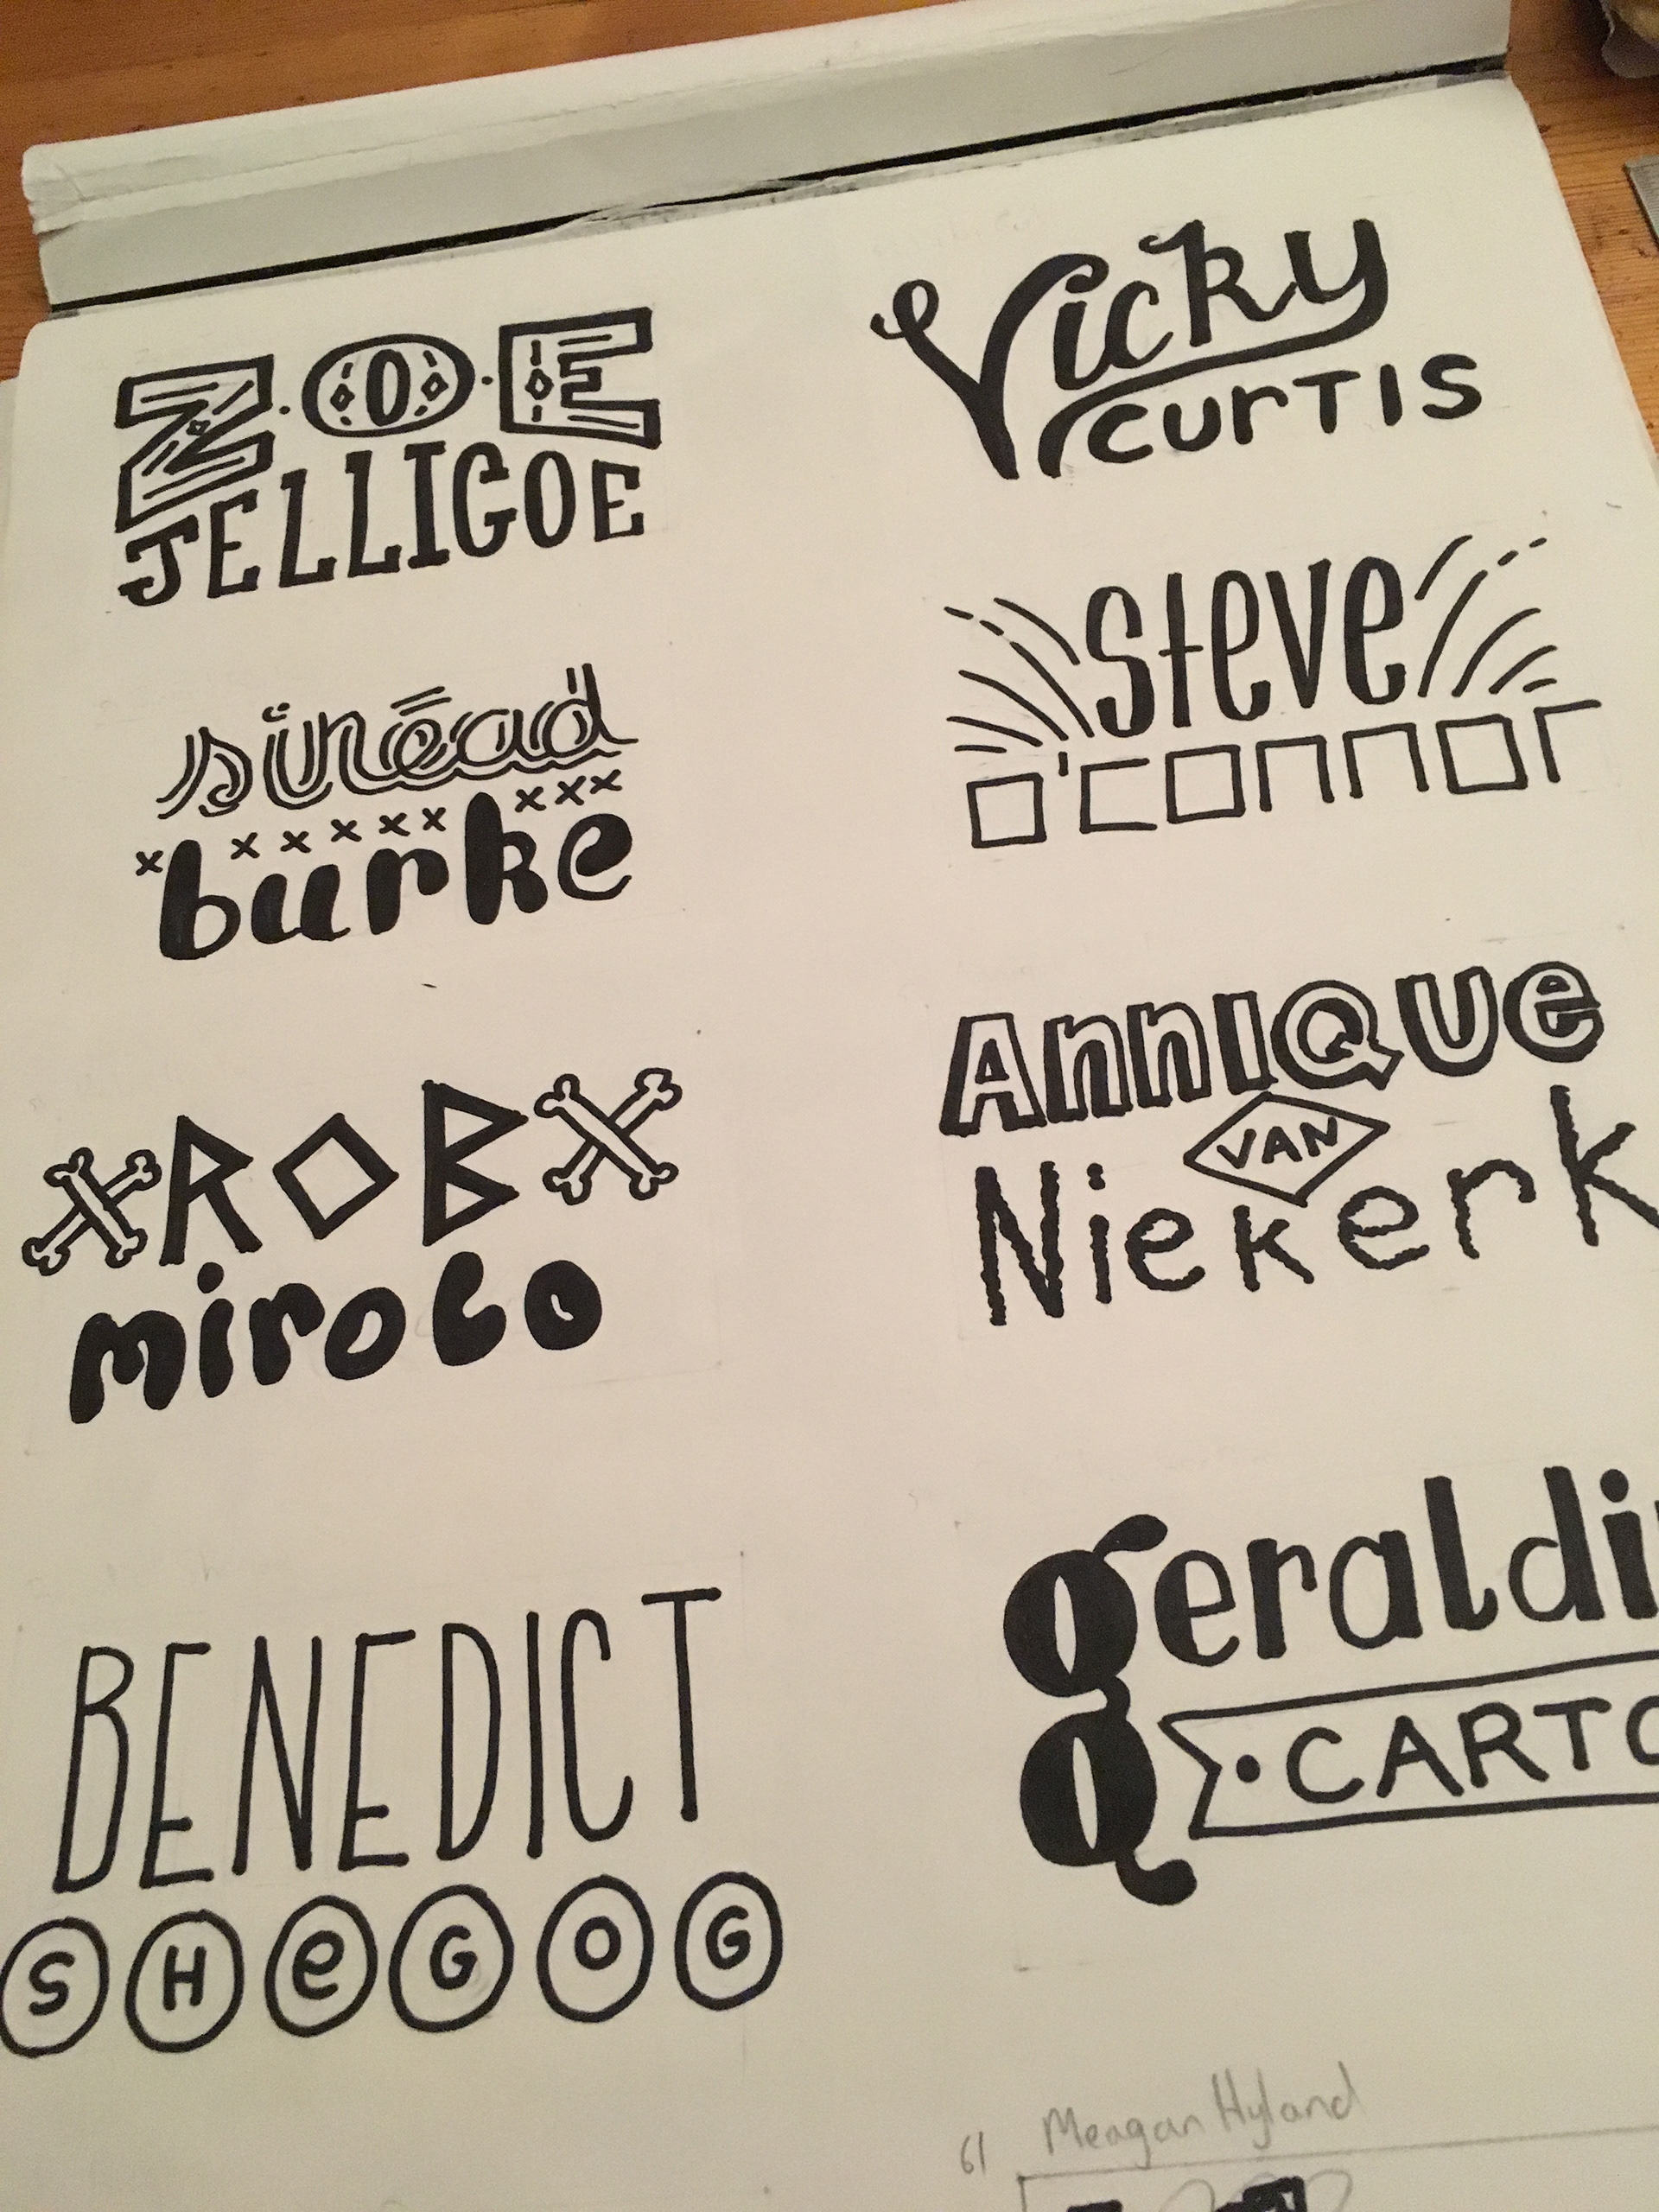 ZOE
JELLIGOE
Vicky
CURTIS
sinéad
burke
steve
o'connor
ROB
miroco
Annique
VAN
Niekerk
BENEDICT
SHeGOG
geraldi
CARTO
61 Meagan Hyland